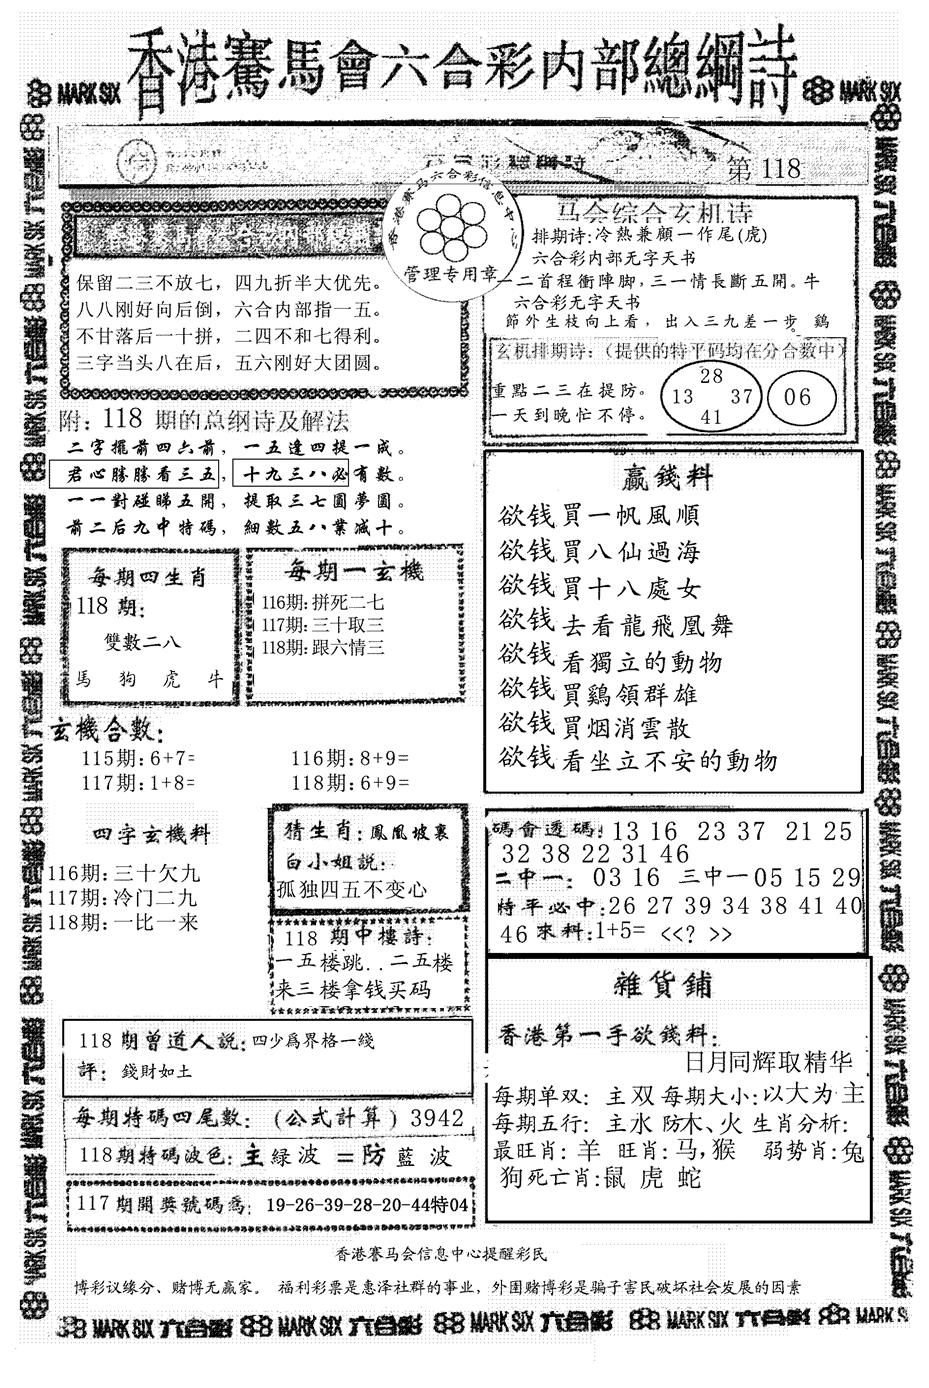 香港賽馬會六合彩内部總綱詩
MARK SIX
MARK SIX
第118
香港赛马六合彩信息中心
管理专用章
保留二三不放七，四九折半大优先。
八八刚好向后倒，六合内部指一五。
不甘落后一十拼，二四不和七得利。
三字当头八在后，五六刚好大团圆。
附：118 期的总纲诗及解法
二字擺前四六前，一五逢四提一成。
君心勝勝看三五，十九三八必有數。
一一對碰睇五開，提取三七圓夢圓。
前二后九中特碼，細數五八業減十。
每期四生肖
118 期：
雙數二八
馬 狗 虎 牛
每期一玄機
116期：拼死二七
117期：三十取三
118期：跟六情三
玄機合數：
115期：6+7=
116期：8+9=
117期：1+8=
118期：6+9=
四字玄機料
116期：三十欠九
117期：冷门二九
118期：一比一来
猜生肖：鳳凰坡裏
白小姐説：
孤独四五不变心
118 期中樓詩：
一五楼跳..二五楼
来三楼拿钱买码
118 期曾道人説：四少爲界格一綫
評：錢財如土
每期特碼四尾數：（公式計算）3942
118期特碼波色：主緑波 =防 藍 波
117期開奬號碼爲：19-26-39-28-20-44特04
马会综合玄机诗
排期诗：冷熱兼顧一作尾(虎)
六合彩内部无字天书
一二首程衝陣脚，三一情長斷五開。牛
六合彩无字天书
節外生枝向上看，出入三九差一步 鷄
玄机排期诗：（提供的特平码均在分合数中）
重點二三在提防。
一天到晚忙不停。
28
13 37
41
06
贏錢料
欲钱買一帆風順
欲钱買八仙過海
欲钱買十八處女
欲钱去看龍飛凰舞
欲钱看獨立的動物
欲钱買鷄領群雄
欲钱買烟消雲散
欲钱看坐立不安的動物
碼會透碼：13 16 23 37 21 25
32 38 22 31 46
二中一：03 16 三中一05 15 29
特平必中：26 27 39 34 38 41 40
46 來料：1+5= <<? >>
雜貨鋪
香港第一手欲錢料：
日月同辉取精华
每期单双：主双 每期大小：以大为主
每期五行：主水 防木、火 生肖分析：
最旺肖：羊 旺肖：马，猴 弱势肖：兔
狗死亡肖：鼠 虎 蛇
香港赛马会信息中心提醒彩民
博彩议缘分、赌博无赢家。 福利彩票是惠泽社群的事业，外围赌博彩是骗子害民破坏社会发展的因素
MARK SIX 六合彩 MARK SIX 六合彩 MARK SIX 六合彩 MARK SIX 六合彩 MARK SIX